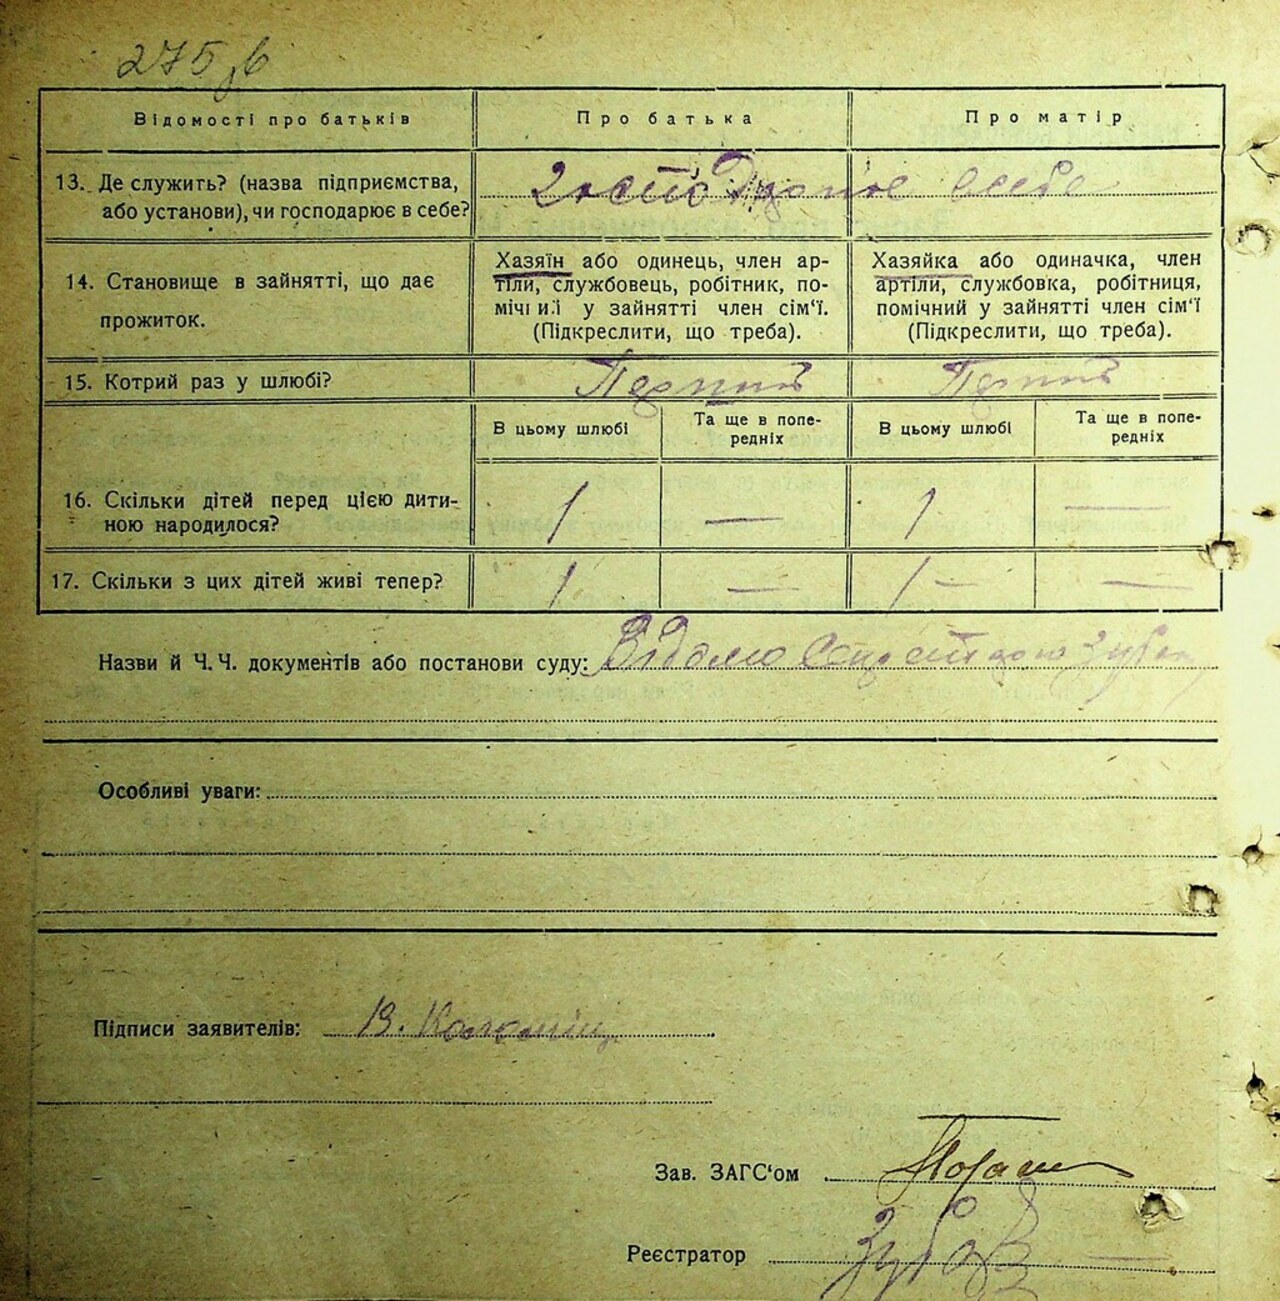 275 в
Відомості про батьків
Про батька
Про матір
13. Де служить? (назва підприємства,
або установи), чи господарює в себе?
господарює в себе
14. Становище в зайнятті, що дає
прожиток.
Хазяїн або одинець, член ар-
тіли, службовець, робітник, по-
мічний у зайнятті член сім'ї.
(Підкреслити, що треба).
Хазяйка або одиначка, член
артіли, службовка, робітниця,
помічний у зайнятті член сім'ї
(Підкреслити, що треба).
15. Котрий раз у шлюбі?
Перший
Перший
В цьому шлюбі
Та ще в попе-
редніх
В цьому шлюбі
Та ще в попе-
редніх
16. Скільки дітей перед цією дити-
ною народилося?
1 — 1 —
17. Скільки з цих дітей живі тепер?
1 — 1 — —
Назви й Ч.Ч. документів або постанови суду: Відомо
Особливі уваги:
Підписи заявителів: В. Коломієць
Зав. ЗАГС'ом
Реєстратор Зубов